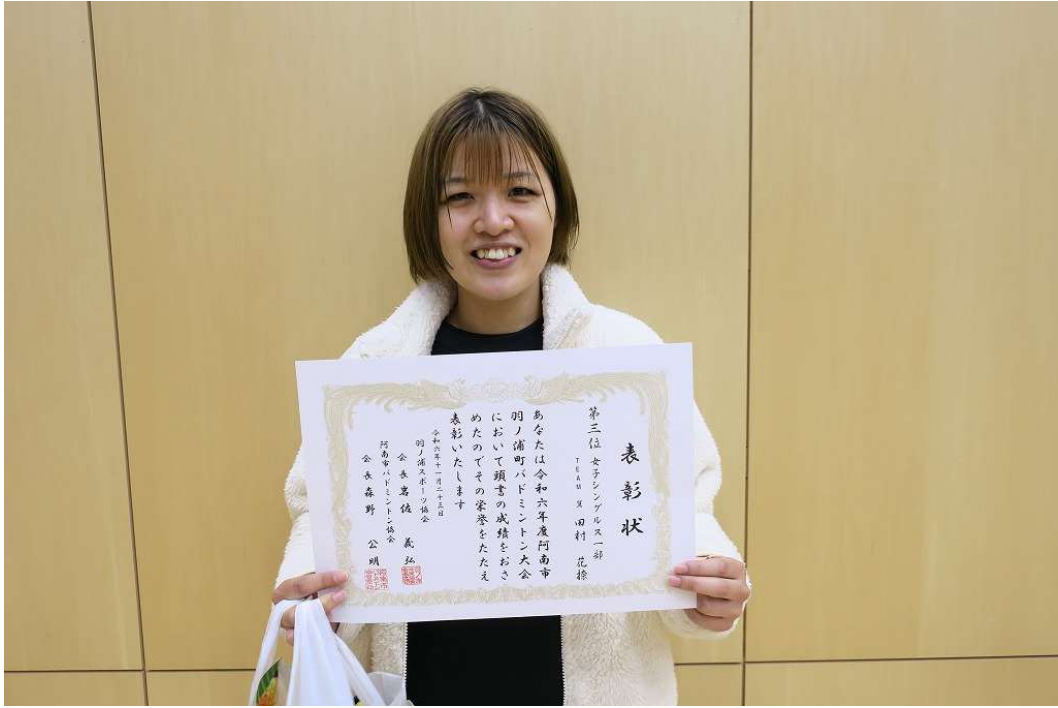 表彰状
第三位 女子シングルス一部
TEAM 翼 田村 花穂
あなたは令和六年度阿南市
羽ノ浦町バドミントン大会
において頭書の成績をおさ
めたのでその栄誉をたたえ
表彰いたします
令和六年十一月二十三日
羽ノ浦スポーツ協会
会長 岩佐 義弘
阿南市バドミントン協会
会長 森野 公明